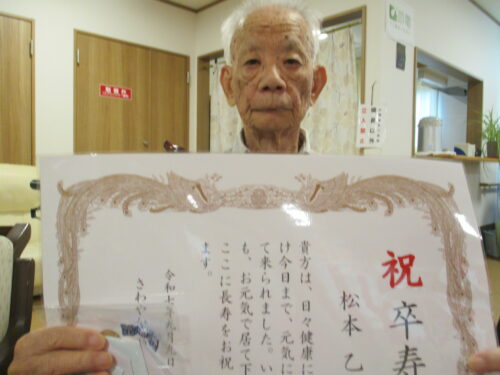 祝 卒寿
松本 乙
貴方は、日々健康に
け今日まで、元気に
て来られました。い
も、お元気で居て下
ここに長寿をお祝
ます。
令和七年九月九日
さわや
職員以外
立入禁止